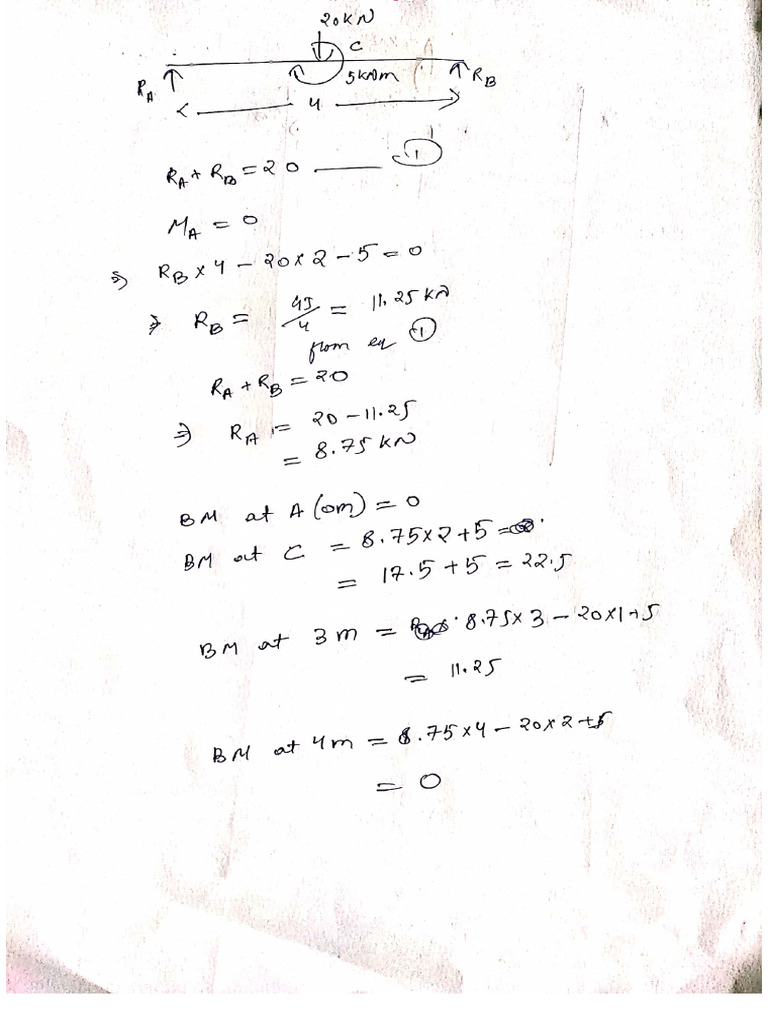 20KN
C
R_A
5kNm
R_B
4
R_A + R_B = 20 —— ①
M_A = 0
⇒ R_B × 4 − 20×2 − 5 = 0
⇒ R_B = 45/4 = 11.25 kN
from eq ①
R_A + R_B = 20
⇒ R_A = 20 − 11.25
= 8.75 kN
BM at A (0m) = 0
BM at C = 8.75×2+5 =
= 17.5 + 5 = 22.5
BM at 3m = 8.75×3 − 20×1+5
= 11.25
BM at 4m = 8.75×4 − 20×2+5
= 0